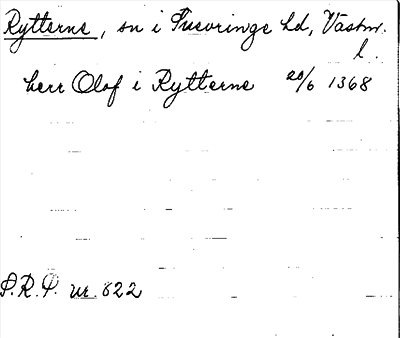 Rytterne, sn i Tuhundra hd, Västm.
l.
herr Olof i Rytterne 20/6 1368
S.R.P. nr. 622